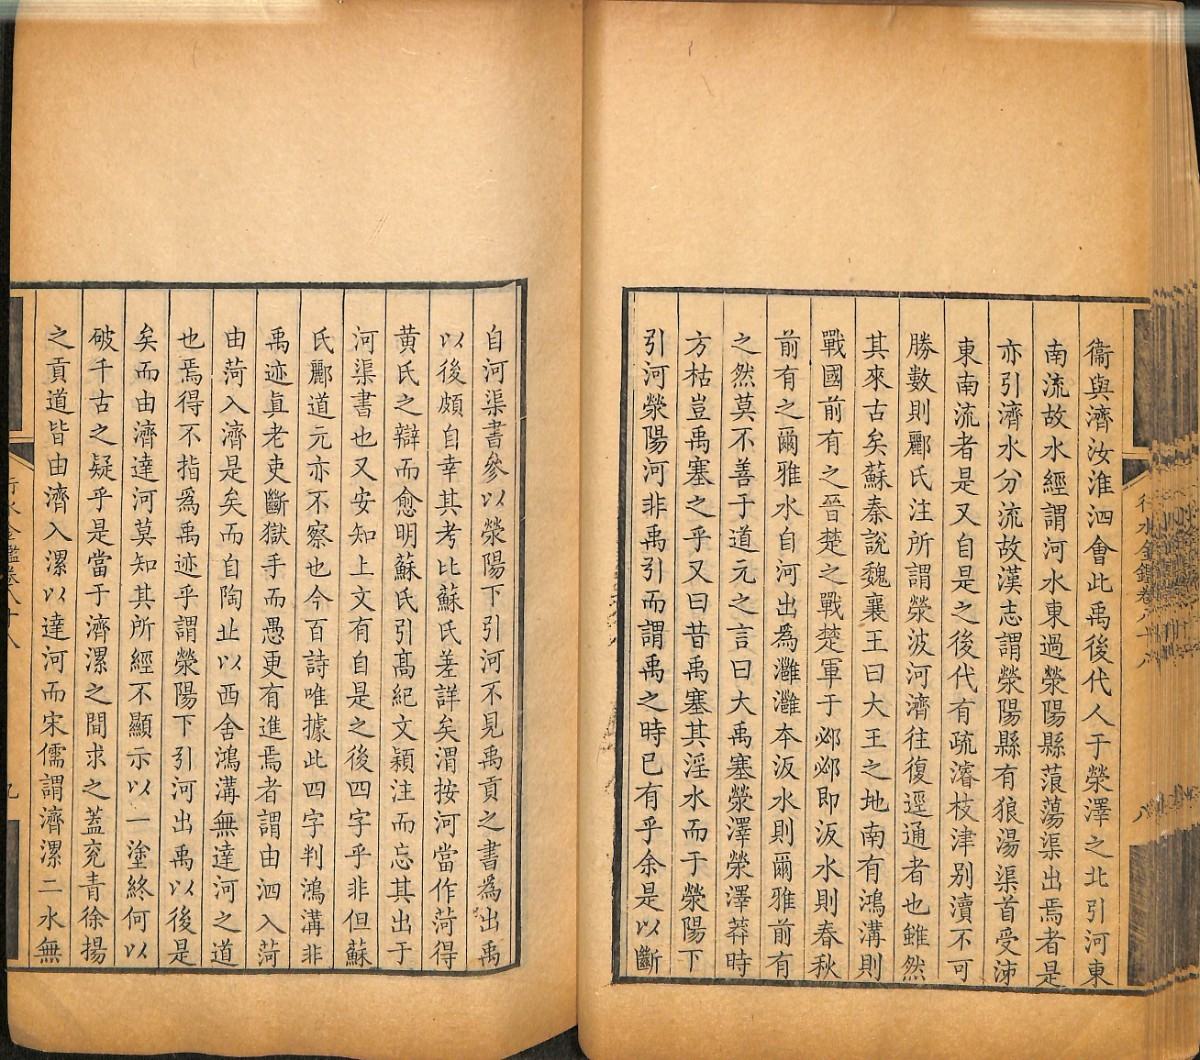 衞與濟汝淮泗會此禹後代人于滎澤之北引河東
南流故水經謂河水東過滎陽縣蒗蕩渠出焉者是
亦引濟水分流故漢志謂滎陽縣有狼湯渠首受泲
東南流者是又自是之後代有疏濬枝津別瀆不可
勝數則酈氏注所謂滎波河濟往復逕通者也雖然
其來古矣蘇秦說魏襄王曰大王之地南有鴻溝則
戰國前有之晉楚之戰楚軍于邲邲即汳水則春秋
前有之爾雅水自河出爲灉灉本汳水則爾雅前有
之然莫不善于道元之言曰大禹塞滎澤滎澤莽時
方枯豈禹塞之乎又曰昔禹塞其淫水而于滎陽下
引河滎陽河非禹引而謂禹之時已有乎余是以斷
行水金鑑卷八十八
八
自河渠書參以滎陽下引河不見禹貢之書為出禹
以後頗自幸其考比蘇氏差詳矣渭按河當作菏得
黃氏之辯而愈明蘇氏引高紀文穎注而忘其出于
河渠書也又安知上文有自是之後四字乎非但蘇
氏酈道元亦不察也今百詩唯據此四字判鴻溝非
禹迹眞老吏斷獄手而愚更有進焉者謂由泗入菏
由菏入濟是矣而自陶丠以西舍鴻溝無達河之道
也焉得不指爲禹迹乎謂滎陽下引河出禹以後是
矣而由濟達河莫知其所經不顯示以一塗終何以
破千古之疑乎是當于濟漯之間求之蓋兖青徐揚
之貢道皆由濟入漯以達河而宋儒謂濟漯二水無
行水金鑑卷八十八
九